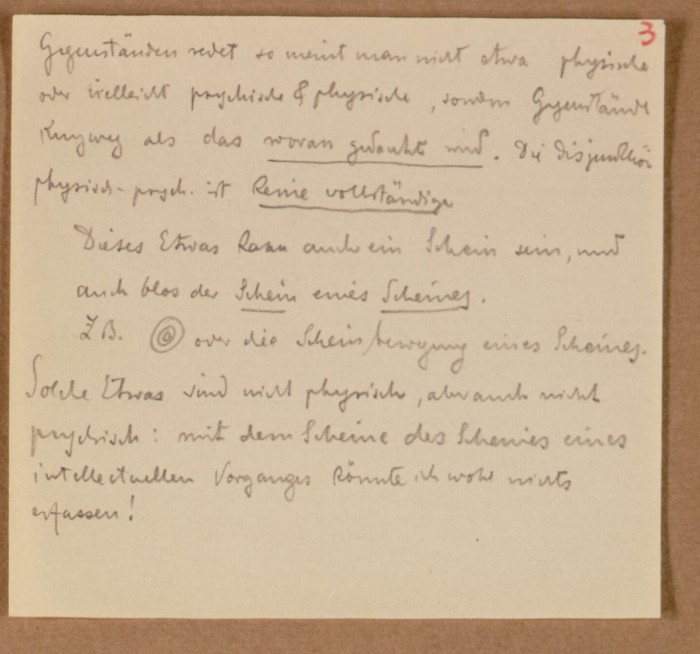 3
Gegenständen redet so meint man nicht etwa physische
oder vielleicht psychische & physische, sondern Gegenstände
kurzweg als das woran gedacht wird. Die Disjunktion
physisch-psych. ist keine vollständige
Dieses Etwas kann auch ein Schein sein, und
auch blos der Schein eines Scheines.
Z B. oder die Scheinbewegung eines Scheines.
Solche Etwas sind nicht physisch, aber auch nicht
psychisch: mit dem Scheine des Scheines eines
intellectuellen Vorganges könnte ich wohl nichts
erfassen!